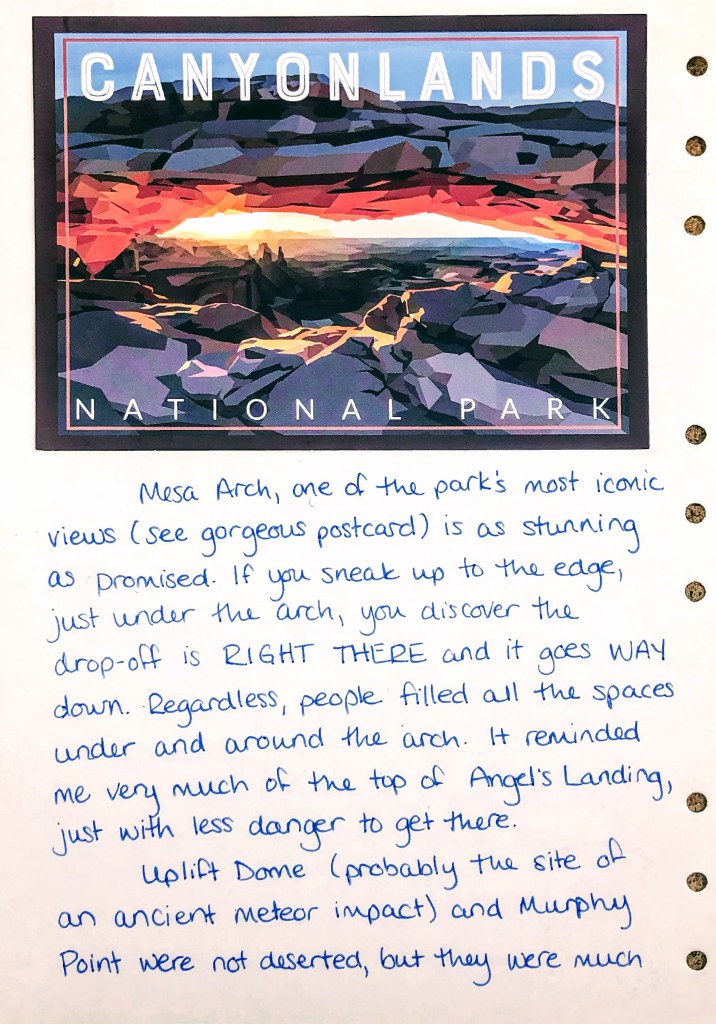 CANYONLANDS
NATIONAL PARK
Mesa Arch, one of the park's most iconic
views (see gorgeous postcard) is as stunning
as promised. If you sneak up to the edge,
just under the arch, you discover the
drop-off is RIGHT THERE and it goes WAY
down. Regardless, people filled all the spaces
under and around the arch. It reminded
me very much of the top of Angel's Landing,
just with less danger to get there.
Uplift Dome (probably the site of
an ancient meteor impact) and Murphy
Point were not deserted, but they were much